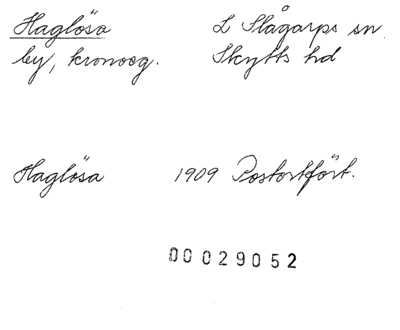 Haglösa L Slågarps sn.
by, kronoeg. Skytts hd
Haglösa 1909 Postortfört.
00029052